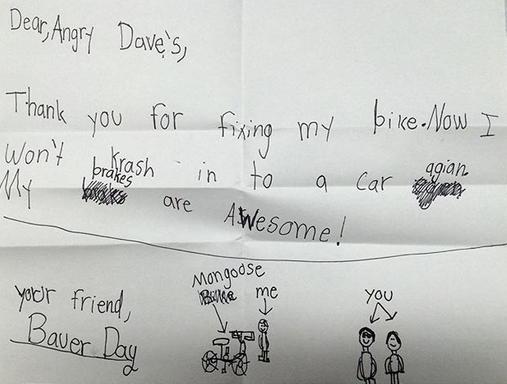 Dear, Angry Dave's,
Thank you for fixing my bike. Now I
Won't Krash in to a car agian
My brakes are AWesome!
your friend,
Bauer Day
Mongoose
me
you